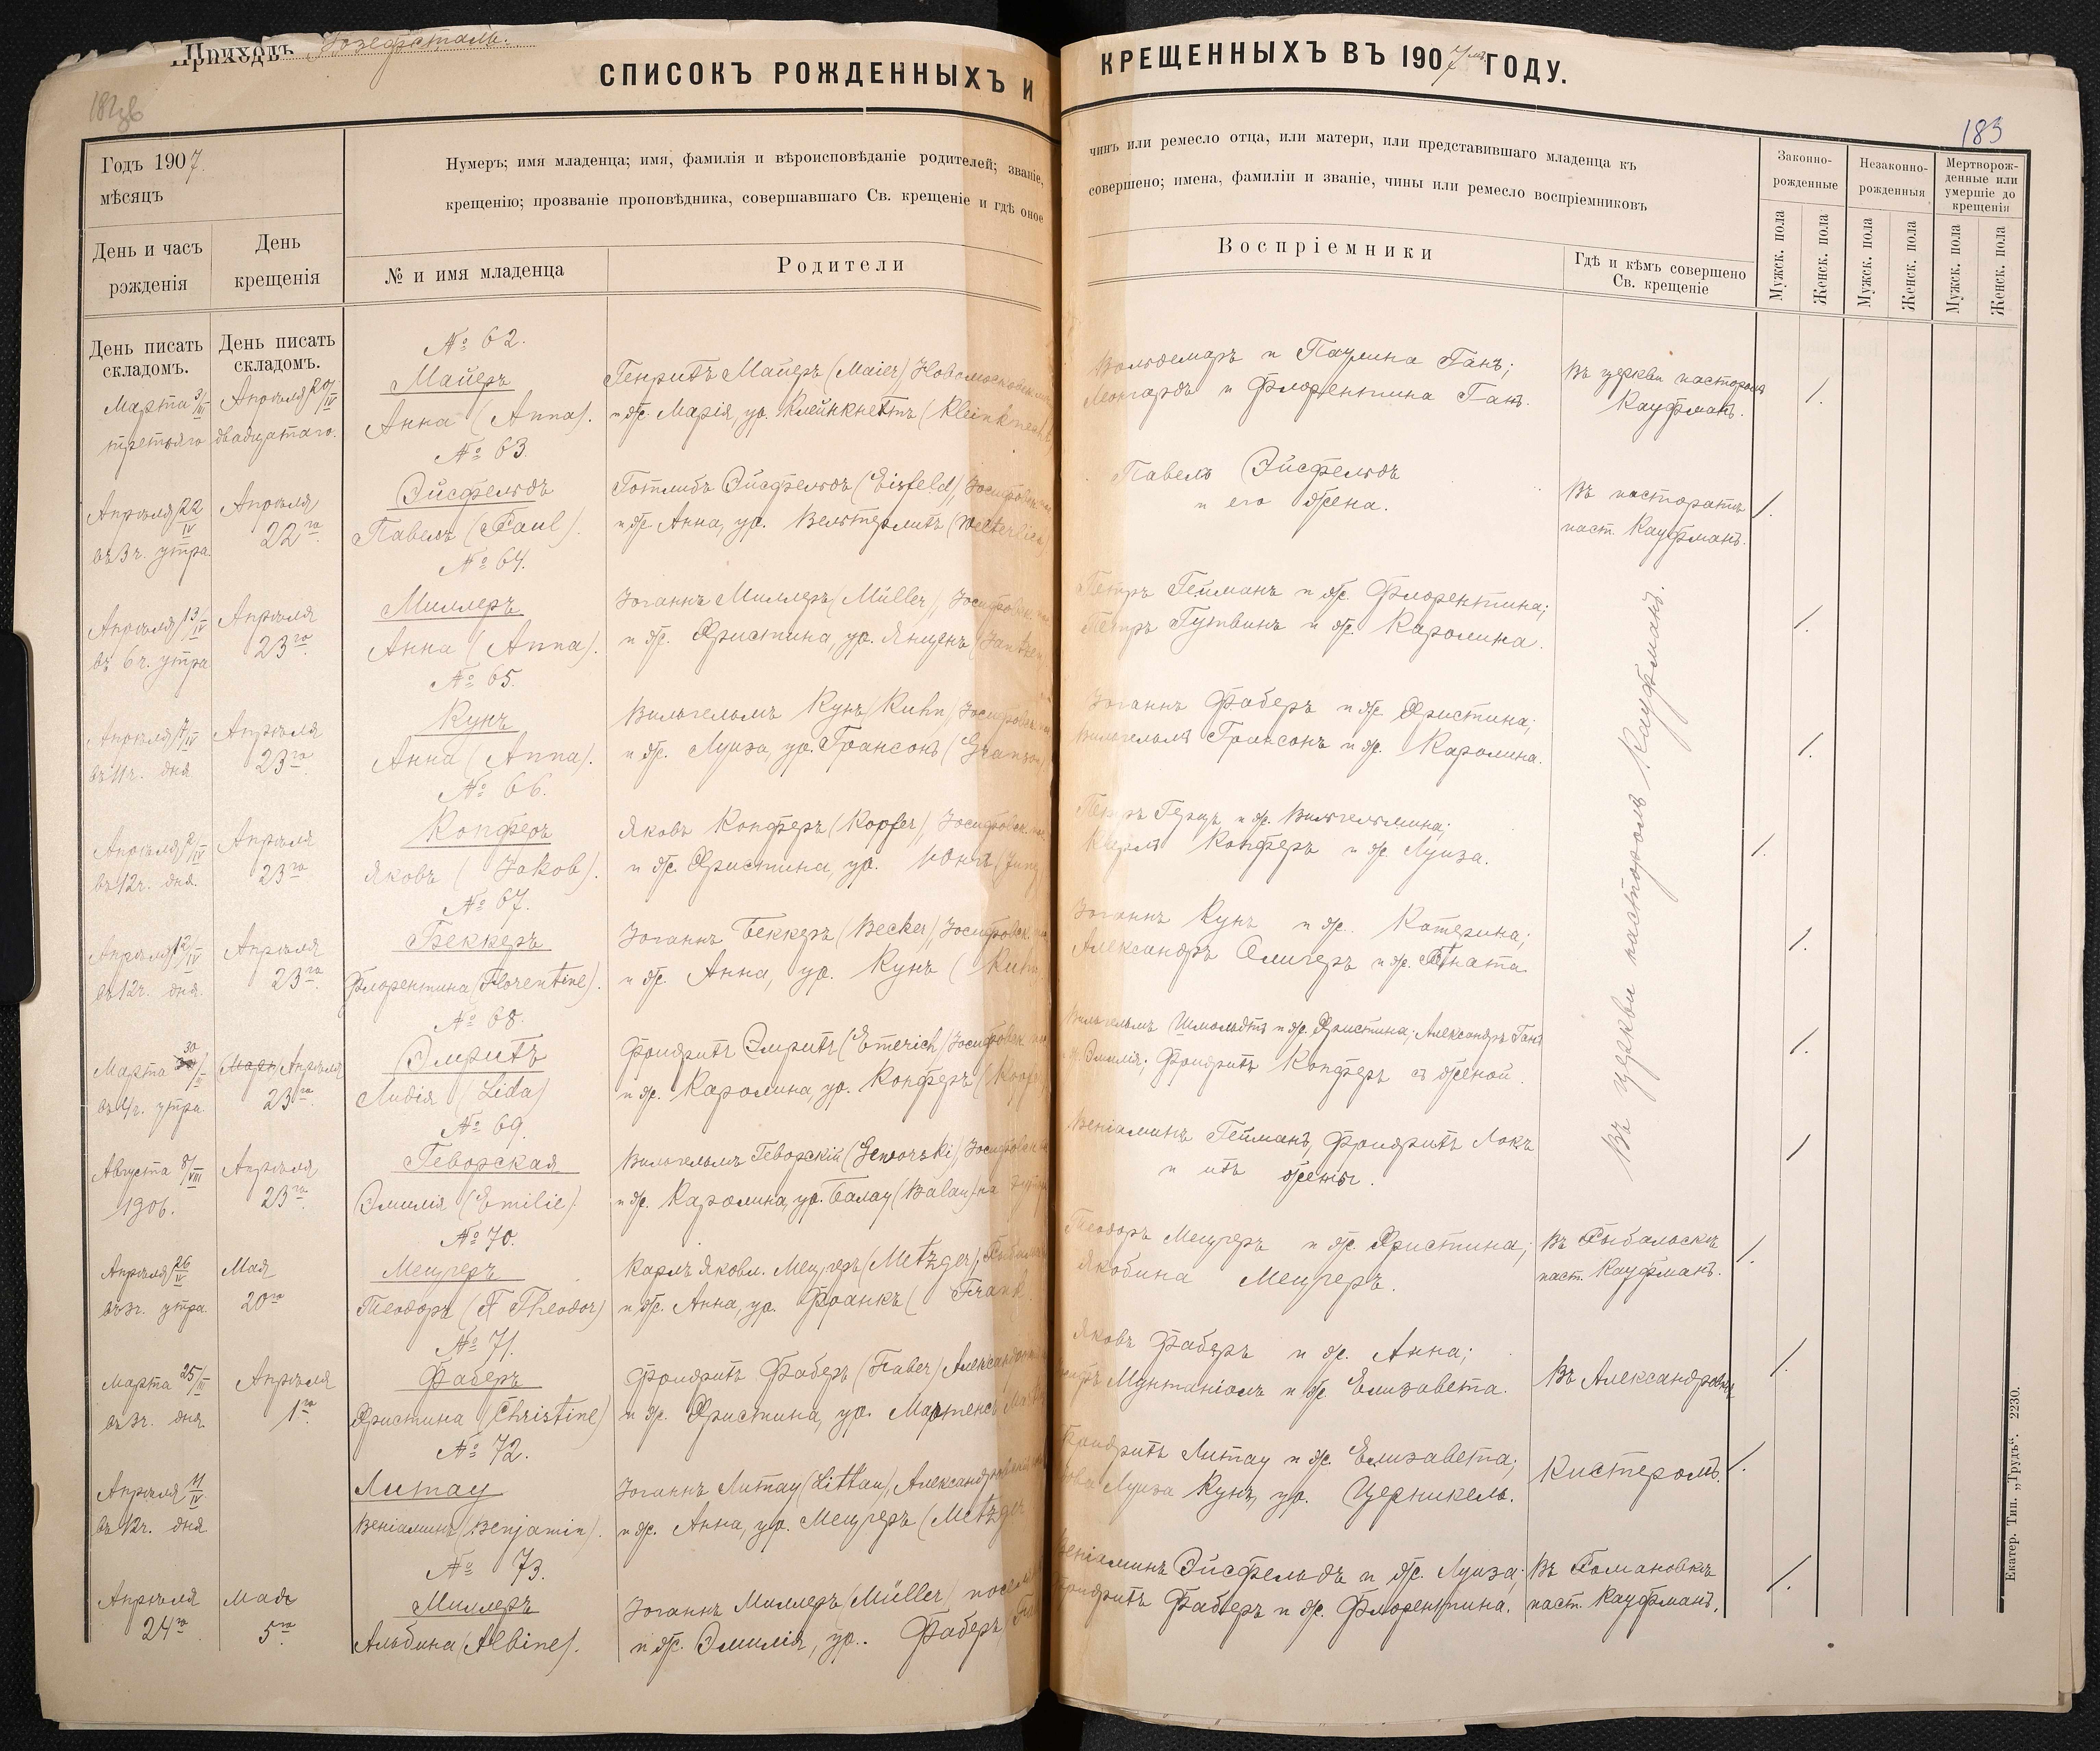 Приходъ Іозефсталь.
СПИСОКЪ РОЖДЕННЫХЪ И КРЕЩЕННЫХЪ ВЪ 1907 ГОДУ.
183
Годъ 1907.
мѣсяцъ
Нумеръ; имя младенца; имя, фамилія и вѣроисповѣданіе родителей; званіе, чинъ или ремесло отца, или матери, или представившаго младенца къ
крещенію; прозваніе проповѣдника, совершавшаго Св. крещеніе и гдѣ оное совершено; имена, фамиліи и званіе, чины или ремесло воспріемниковъ
День и часъ рожденія
День крещенія
№ и имя младенца
Родители
Воспріемники
Гдѣ и кѣмъ совершено Св. крещеніе
Законно-рожденные
Незаконно-рожденныя
Мертворож-денные или умершіе до крещенія
Мужск. пола
Женск. пола
Мужск. пола
Женск. пола
Мужск. пола
Женск. пола
День писать складомъ.
День писать складомъ.
№ 62.
Марта 3/III третьяго
Апрѣля 20/IV двадцатаго.
Майеръ
Анна (Anna).
Генрихъ Майеръ (Maier)
и ж. Марія, ур. Клейнкнехтъ (Kleinknecht
Вольдемаръ и Паулина Ганъ;
Леонгардъ и Флорентина Ганъ.
Въ церкви пасторомъ
Кауфманъ.
1.
№ 63.
Апрѣля 22/IV
въ 3 ч. утра
Апрѣля
22го.
Эйсфельдъ
Павелъ (Paul).
Готлибъ Эйсфельдъ (Eisfeld),
и ж. Анна, ур. Вельтерлихъ (Welterlich)
Павелъ Эйсфельдъ
и его жена.
Въ пасторатѣ
паст. Кауфманъ.
1.
№ 64.
Апрѣля 13/IV
въ 6 ч. утра
Апрѣля
23го.
Миллеръ
Анна (Anna).
Іоганнъ Миллеръ (Müller),
и ж. Христина, ур. Янценъ (Jantzen
Петръ Гейманъ и ж. Флорентина;
Петръ Гутвинъ и ж. Каролина.
1.
Въ церкви пасторомъ Кауфманъ.
№ 65.
Апрѣля 7/IV
въ 11 ч. дня
Апрѣля
23го.
Кунъ
Анна (Anna).
Вильгельмъ Кунъ (Kuhn)
и ж. Луиза, ур. Грансонъ (Granson)
Іоганнъ Фаберъ и ж. Христина;
Вильгельмъ Грансонъ и ж. Каролина.
1.
№ 66.
Апрѣля 2/IV
въ 12 ч. дня.
Апрѣля
23го
Копферъ
Яковъ (Jakob).
Яковъ Копферъ (Kopfer),
и ж. Христина, ур. Юнгъ (Jung
Петръ Герцъ и ж. Вильгельмина;
Карлъ Копферъ и ж. Луиза.
1.
№ 67.
Апрѣля 12/IV
въ 12 ч. дня
Апрѣля
23го.
Беккеръ
Флорентина (Florentine).
Іоганнъ Беккеръ (Becker),
и ж. Анна, ур. Кунъ (Kuhn
Іоганнъ Кунъ и ж. Катерина;
Александръ Олигеръ и ж.
1.
№ 68.
Марта 30/III
въ 4 ч. утра
Апрѣля
23го.
Эмрихъ
Лидія (Lida)
Фридрихъ Эмрихъ (Emerich)
и ж. Каролина, ур. Копферъ (Kopfer
Вильгельмъ Шмольдтъ и ж. Христина; Александръ Ганъ
Эмилія; Фридрихъ Копферъ съ женой.
1.
№ 69.
Августа 8/VIII
1906.
Апрѣля
23го.
Геворская
Эмилія (Emilie).
Вильгельмъ Геворскій (Geworski)
и ж. Каролина, ур. Балау (Balau)
Веніаминъ Гейманъ, Фридрихъ Локъ
и ихъ жены.
1
№ 70.
Апрѣля 26/IV
въ 3 ч. утра.
Мая
20го
Мецгеръ
Теодоръ (Theodor)
Карлъ Яковл. Мецгеръ (Metzger),
и ж. Анна, ур. Франкъ (Frank
Теодоръ Мецгеръ и ж. Христина;
Якобина Мецгеръ.
Въ Рыбальскѣ
паст. Кауфманъ.
1.
№ 71.
Марта 25/III
въ 3 ч. дня
Апрѣля
1го
Фаберъ
Христина (Christine)
Фридрихъ Фаберъ (Faber)
и ж. Христина, ур. Мартенсъ
Яковъ Фаберъ и ж. Анна;
Мунтаніолъ и ж. Елизавета.
Въ Александровкѣ
1.
№ 72.
Апрѣля 11/IV
въ 12 ч. дня
Литау
Веніаминъ (Benjamin).
Іоганнъ Литау (Littau),
и ж. Анна, ур. Мецгеръ (Metzger
Фридрихъ Литау и ж. Елизавета;
Луиза Кунъ, ур. Церникель.
Кистеромъ.
1.
№ 73.
Апрѣля
24го
Мая
5го.
Миллеръ
Альбина (Albine).
Іоганнъ Миллеръ (Müller)
и ж. Эмилія, ур. Фаберъ
Веніаминъ Эйсфельдъ и ж. Луиза;
Фридрихъ Фаберъ и ж. Флорентина.
Въ Романовкѣ
паст. Кауфманъ.
1.
Екатер. Тип. „Трудъ“. 2230.